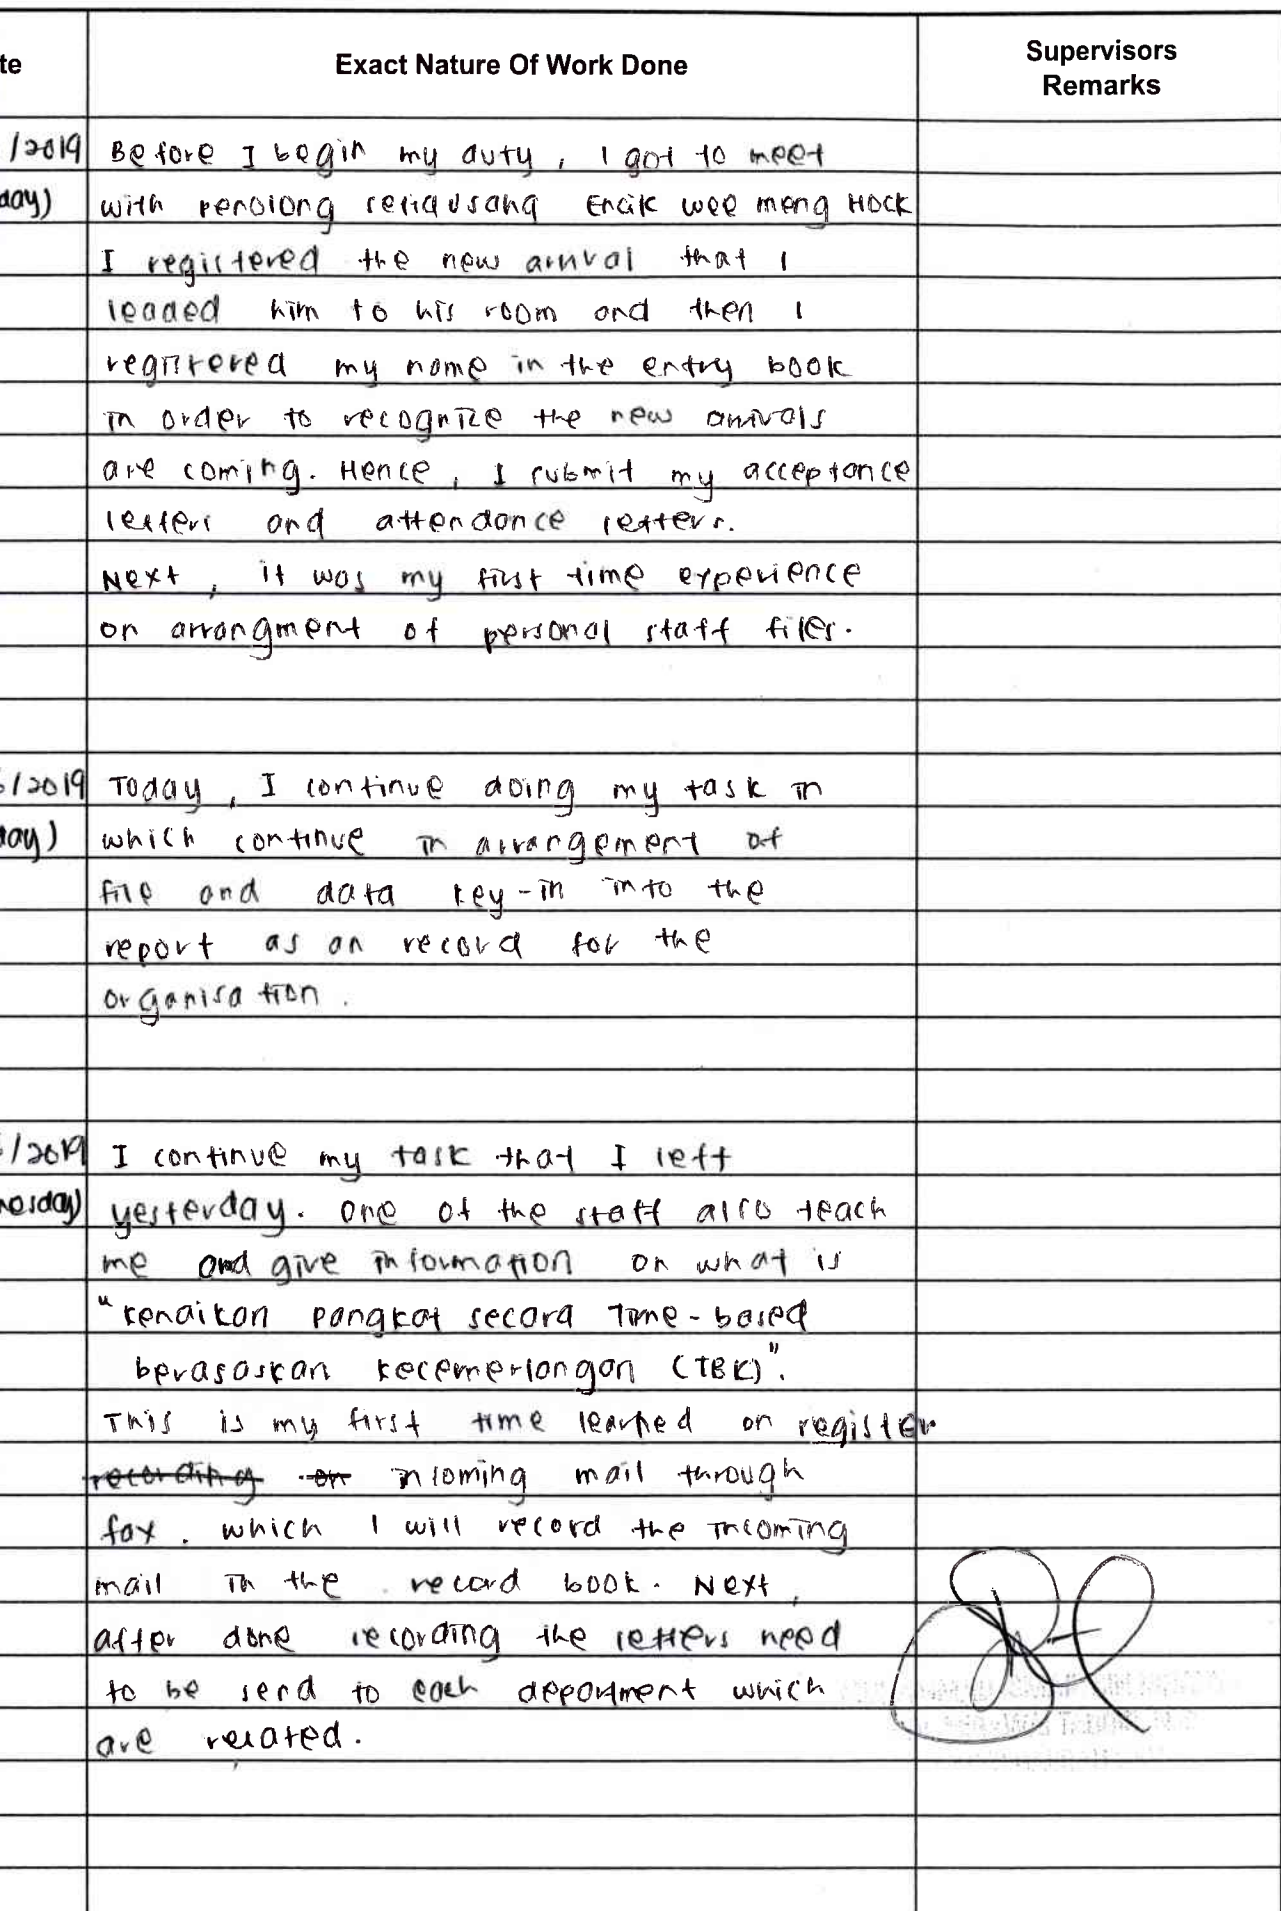 te
Exact Nature Of Work Done
Supervisors
Remarks
/2019
day)
Before I begin my duty, I got to meet
with penolong setiausaha Encik wee meng Hock
I registered the new arrival that I
leaded him to his room and then I
registered my name in the entry book
in order to recognize the new arrivals
are coming. Hence, I submit my acceptance
letters and attendance letters.
Next, it was my first time experience
on arrangment of personal staff files.
/2019
day)
Today, I continue doing my task in
which continue in arrangement of
file and data key-in into the
report as an record for the
organisation.
/2019
nesday)
I continue my task that I left
yesterday. One of the staff also teach
me and give information on what is
"kenaikan pangkat secara Time-based
berasaskan kecemerlangan (TBK)".
This is my first time learned on register
recording on incoming mail through
fax. which I will record the incoming
mail in the record book. Next,
after done recording the letters need
to be send to each department which
are related.